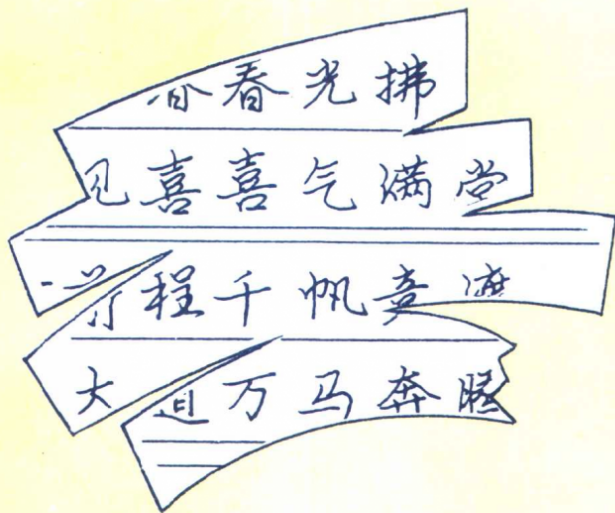 春光拂
见喜喜气满堂
程千帆竞渡
大道万马奔腾